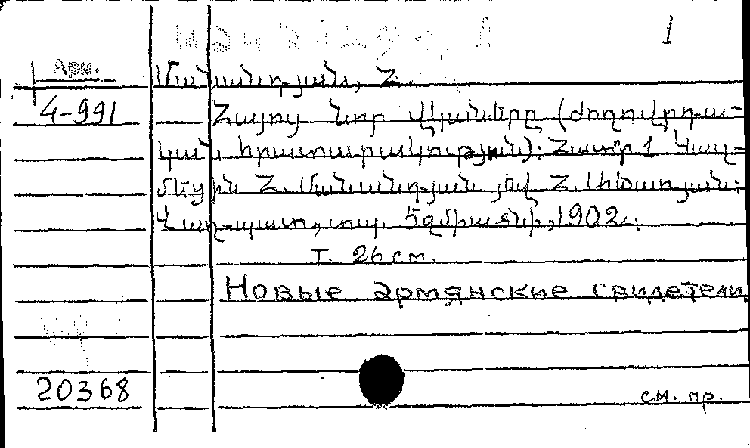 1
Арм.
Մանանդյան, Հ.
4-991
Հայոց նոր վկաները (ժողովրդա-
կան հրատարակություն): Հատոր 1 Կազ-
մեցին Հ. Մանանդյան յեվ Հ. Աճառյան:
Վաղ-պատ, տպ. Եջմիածնի, 1902.
т. 26 см.
Новые армянские свидетели
20368
см. пр.